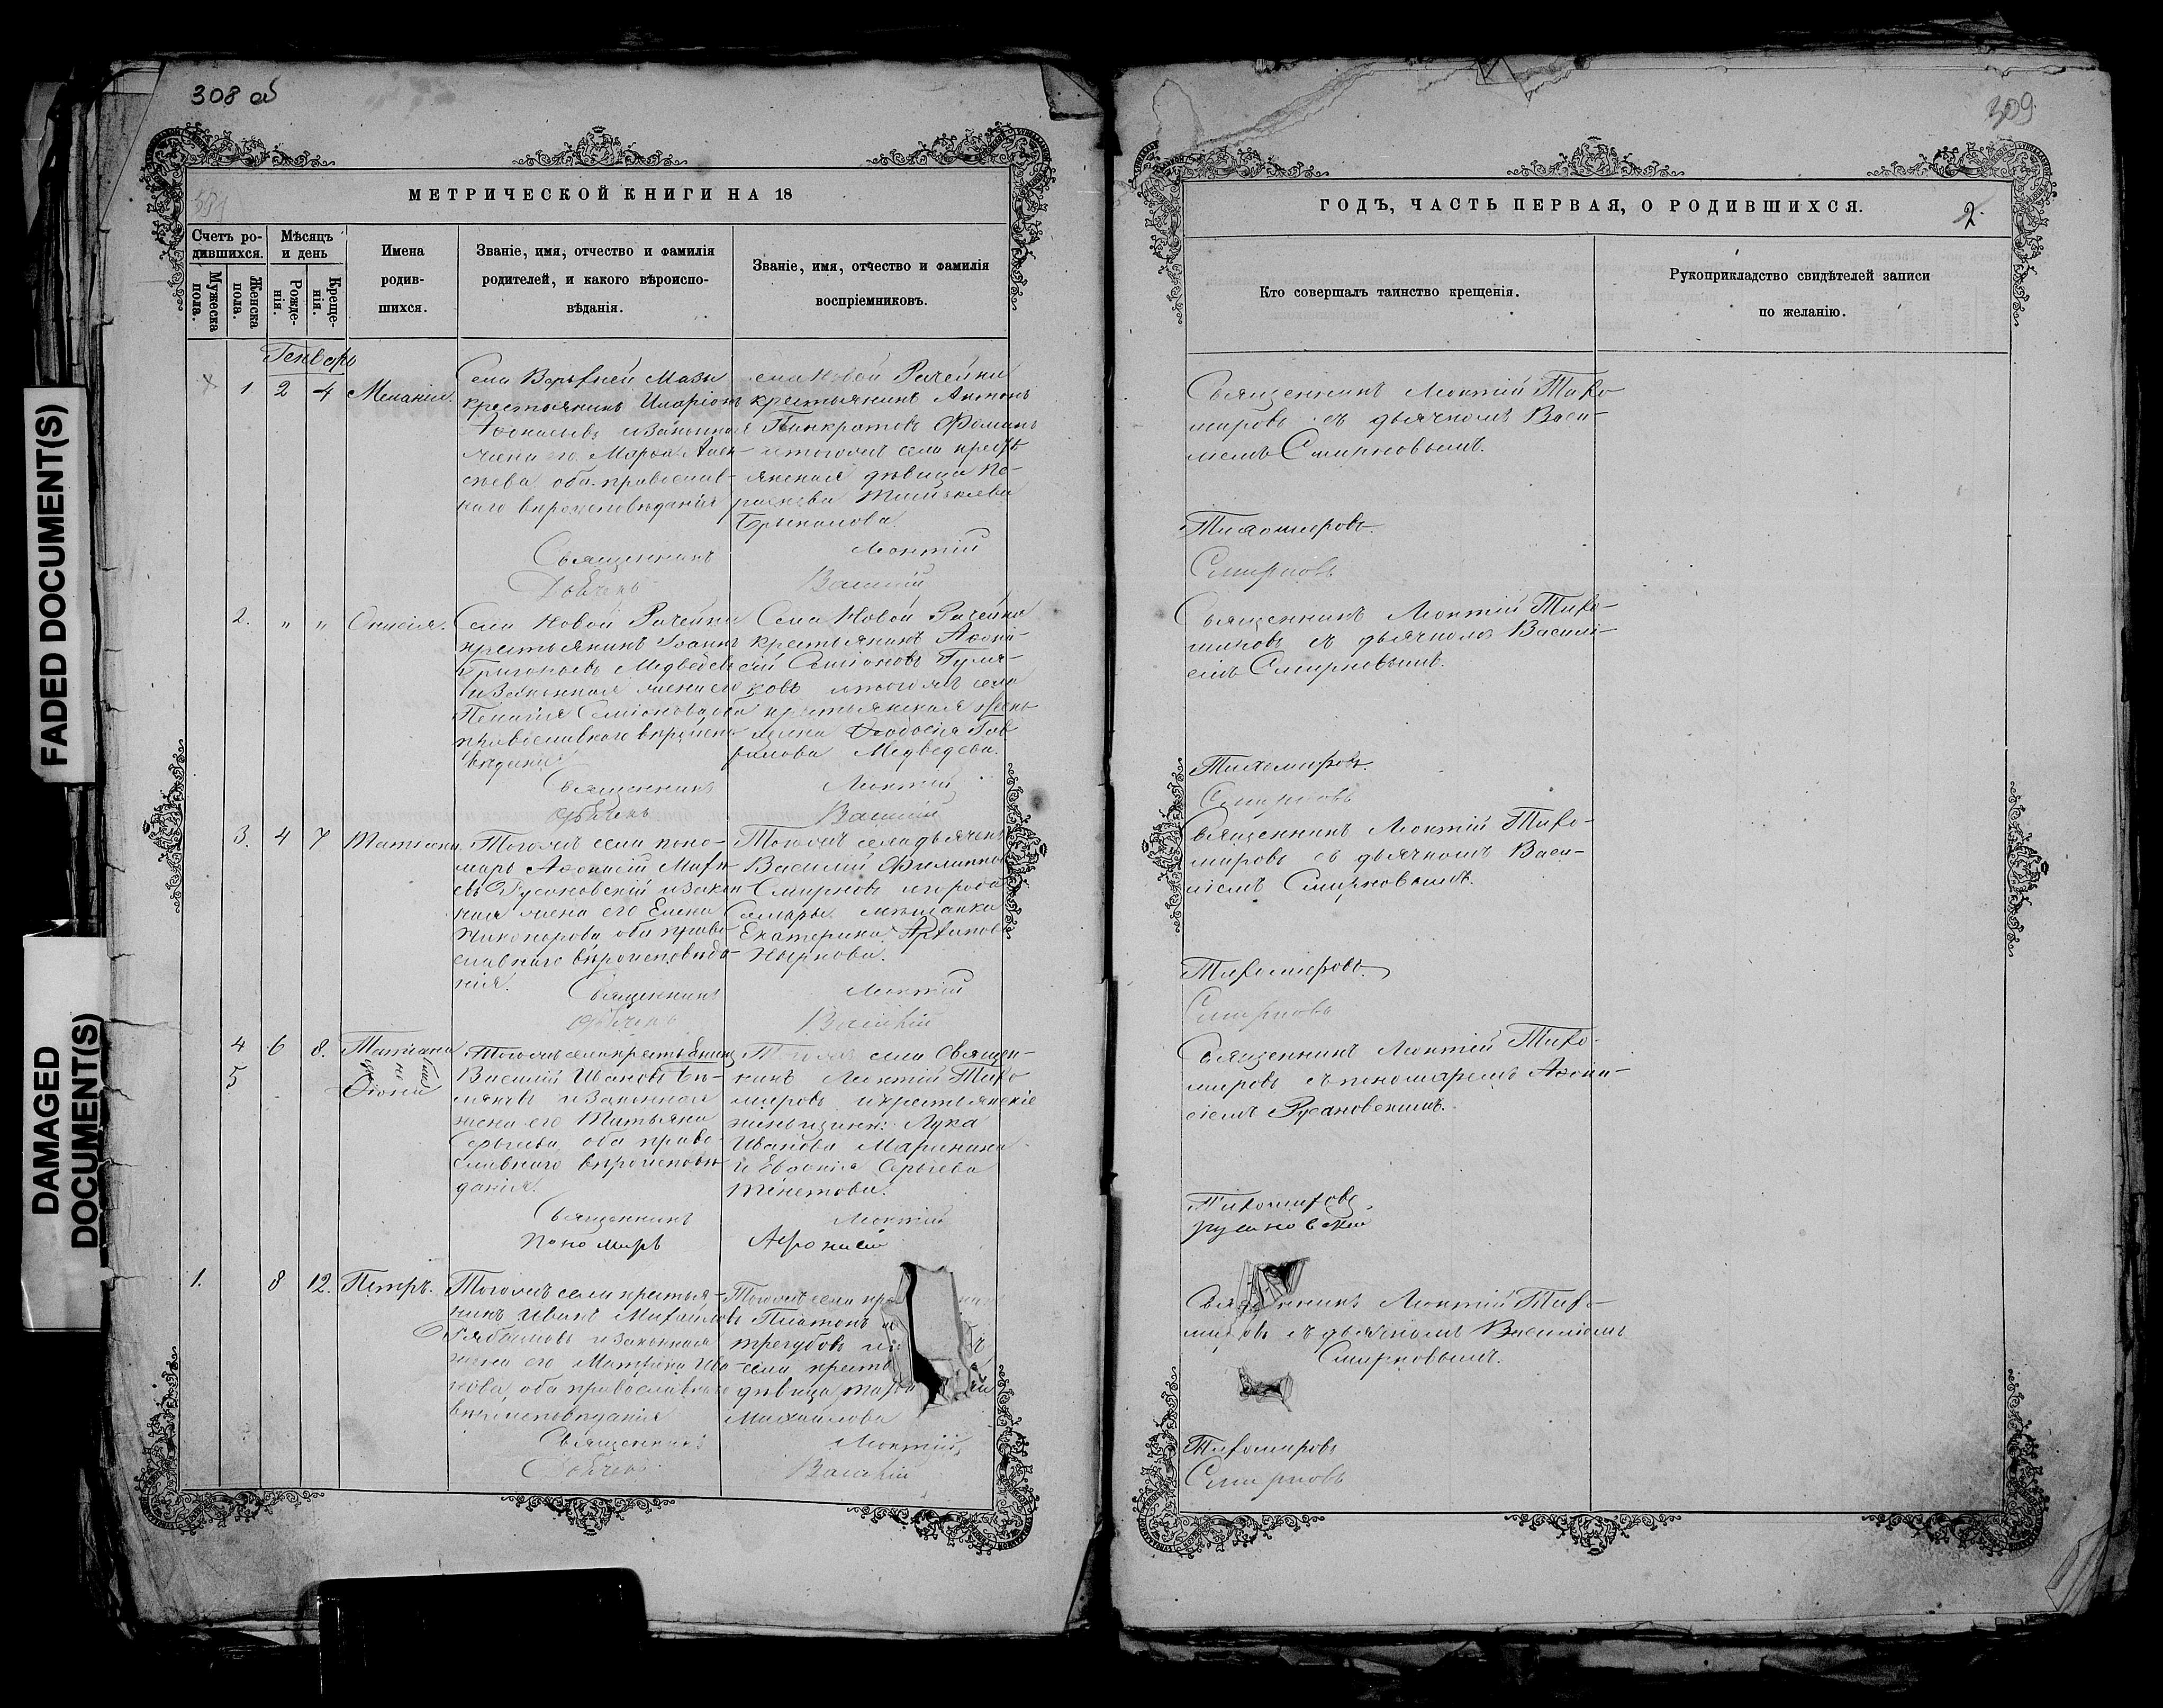 FADED DOCUMENT(S)
DAMAGED DOCUMENT(S)
308 об
МЕТРИЧЕСКОЙ КНИГИ НА 18
Счетъ ро-
дившихся.
Мужеска пола.
Женска пола.
Мѣсяцъ
и день
Рожде-
нія.
Креще-
нія.
Имена
родив-
шихся.
Званіе, имя, отчество и фамилія
родителей, и какого вѣроиспо-
вѣданія.
Званіе, имя, отчество и фамилія
воспріемниковъ.
Генварь
1. 2 4 Меланія.
Села Верхней Мазы
крестьянинъ Иларіонъ
и законная
жена его Марья Алек-
сѣева оба православ-
наго вѣроисповѣданія
села Новой Рачейки
крестьянинъ Антонъ
Панкратовъ Фоминъ
и тогожъ села кресть
янская дѣвица Па-
раскева
Священникъ Леонтій
Дьячекъ Василій
2. „ „
Села Новой Рачейки
крестьянинъ Іоаннъ
Григорьевъ Медведевъ
и законная жена его
Пелагія Семіонова оба
православнаго вѣроиспо
вѣданія
Села Новой Рачейки
крестьянинъ Афана-
сій Семіоновъ Гуля-
ковъ и тогожъ села
крестьянская жена
Феодосія Гав
рилова Медведева.
Священникъ Леонтій
дьячекъ Василій
3. 4 7 Татіана.
Тогожъ села поно-
марь Афанасій Матѳе-
евъ Русановскій и закон
ная жена его Елена
Никонорова оба право
славнаго вѣроисповѣда
нія.
Тогожъ села дьячекъ
Василій Филиппов
Смирновъ и города
Самары мѣщанка
Екатерина Архипова
Священникъ Леонтій
дьячекъ Василій
4 6 8. Татіана
5
Тогожъ села крестьянинъ
Василій Ивановъ
и законная
жена его Татьяна
Сергѣева оба право-
славнаго вѣроисповѣ
данія.
Тогожъ села Священ-
никъ Леонтій Тихо
мировъ и крестьянскіе
женщины: Лука
Иванова Маринина
и Евфимія Сергѣева
Тенетова.
Священникъ Леонтій
пономарь Афонасій
1. 8 12. Петръ.
Тогожъ села крестья-
нинъ Иванъ Михайловъ
и законная
жена его Матрона Ива-
нова, оба православнаго
вѣроисповѣданія
Тогожъ села
Платонъ
трегубовъ
села крест
дѣвица
Михайлова
Священникъ Леонтій
Дьячекъ Василій
309
ГОДЪ, ЧАСТЬ ПЕРВАЯ, О РОДИВШИХСЯ.
2.
Кто совершалъ таинство крещенія.
Рукоприкладство свидѣтелей записи
по желанію.
Священникъ Леонтій Тихо
мировъ съ дьячкомъ Васи-
ліемъ Смирновымъ.
Тихомировъ.
Смирновъ
Священникъ Леонтій Тихо-
мировъ съ дьячкомъ Васили-
емъ Смирновымъ.
Тихомировъ.
Смирновъ
Священникъ Леонтій Тихо-
мировъ съ дьячкомъ Васи-
ліемъ Смирновымъ.
Тихомировъ.
Смирновъ
Священникъ Леонтій Тихо-
мировъ съ пономаремъ Афона-
сіемъ Русановскимъ.
Тихомировъ.
Русановскій
Священникъ Леонтій Тихо-
мировъ съ дьячкомъ Василіемъ
Смирновымъ.
Тихомировъ
Смирновъ